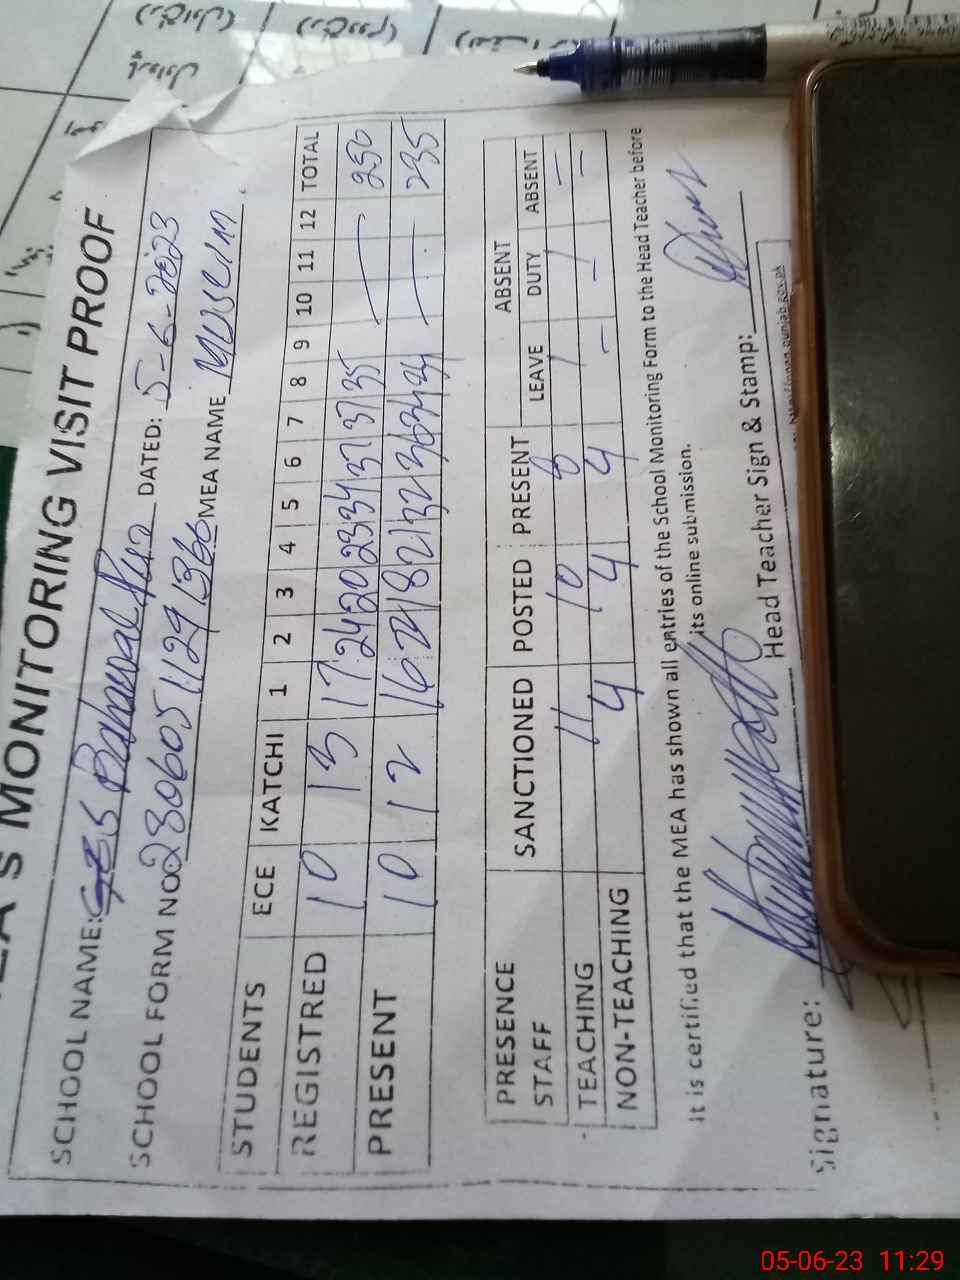 MEA'S MONITORING VISIT PROOF
SCHOOL NAME: GES Bahawal Pura DATED: 5-6-2023
SCHOOL FORM NO 2806051129 1366 MEA NAME MUSLIM
STUDENTS ECE KATCHI 1 2 3 4 5 6 7 8 9 10 11 12 TOTAL
REGISTRED 10 13 17 24 20 23 34 37 37 35 — 250
PRESENT 10 12 16 21 18 21 32 36 34 — 235
PRESENCE STAFF SANCTIONED POSTED PRESENT ABSENT
LEAVE DUTY ABSENT
TEACHING 11 10 8 / / —
NON-TEACHING 4 4 4 — — —
It is certified that the MEA has shown all entries of the School Monitoring Form to the Head Teacher before
its online submission.
Signature: Head Teacher Sign & Stamp:
05-06-23 11:29